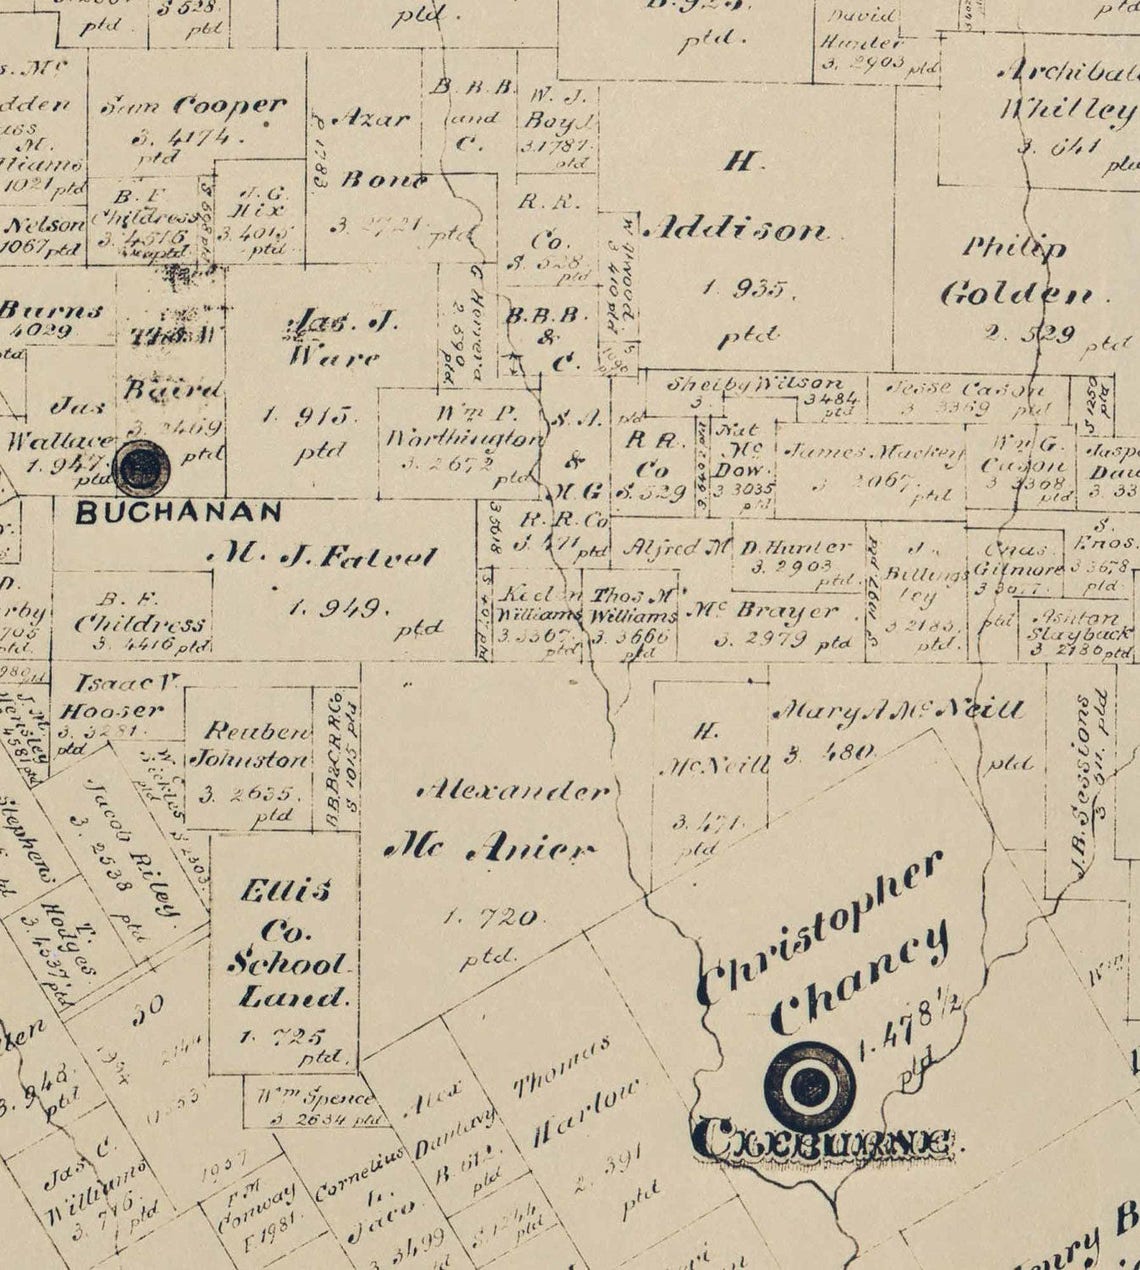 3528.
ptd.
ptd
ptd.
ptd.
David
Hunter
3. 2903 ptd
Archibal
Whitley
3. 641
Sam Cooper
3. 4174.
ptd
1021 ptd
Nelson
1067 ptd
B. F.
Childress
J. G.
Hix
3. 4015
ptd.
S 1783
Azar
Bone
3. 2721 ptd
B. B. B.
and
C.
W. J.
Boyd
3.1787.
ptd
R. R.
Co.
S. 528.
ptd
B.B.B.
&
C.
H.
Addison
1. 935.
ptd
Philip
Golden.
2. 529 ptd
Burns
4029
Baird
3. 2469
ptd
Jas
Wallace
1. 947.
ptd
BUCHANAN
Jas. J.
Ware
1. 915.
ptd
G Herrera
2. 590
ptd
Wm P.
Worthington
3. 2672
ptd
S. A.
&
M. G
R. R. Co
S. 471 ptd
Shelby Wilson
3
3484
ptd
Jesse Cason
3 3359 ptd
S 1250
ptd
R R.
Co
S. 529
Nat
Mc
Dow.
3 3035
ptd
James Mackey
3. 2067.
ptd
Wm G.
Cason
3 3308
ptd
M. J. Falvel
1. 949.
ptd
B. F.
Childress
3. 4416 ptd
Williams
3.3367.
ptd
Thos M
Williams
3. 3666
ptd
Alfred M
Mc Brayer
3. 2979 ptd
D. Hunter
3. 2903
ptd.
J.
Billings
ley
3 2183.
ptd.
Chas.
Gilmore
ptd
S.
Enos.
3 3678
ptd
Ashton
Slayback
3. 2180 ptd
Isaac V.
Hooser
3. 3281.
ptd
Reuben
Johnston
3. 2635.
ptd
B.B.B.&C.R.R.Co
S 1015 ptd
Alexander
Mc Anier
1. 720
ptd.
H.
McNeill
3. 471.
ptd
Mary A Mc Neill
3. 480.
ptd
J.B. Sessions
3 911. ptd
Jacob Riley.
3. 2538 ptd
Stephens
T.
Hodges.
3. 4537 ptd
Ellis
Co.
School
Land.
1. 725
ptd.
30
Christopher
Chancy
1. 478½
ptd
CLEBURNE.
Wm Spence
3 2634 ptd
Alex
Dunlavy
R 612.
ptd
Thomas
Harlow
2. 391
ptd
3. 948.
ptd
Jas C.
Williams
3. 776.
ptd
1937
F M
Conway
F. 1981.
Cornelius
L.
Jaco.
3 3499
S. 1244
ptd
Wm